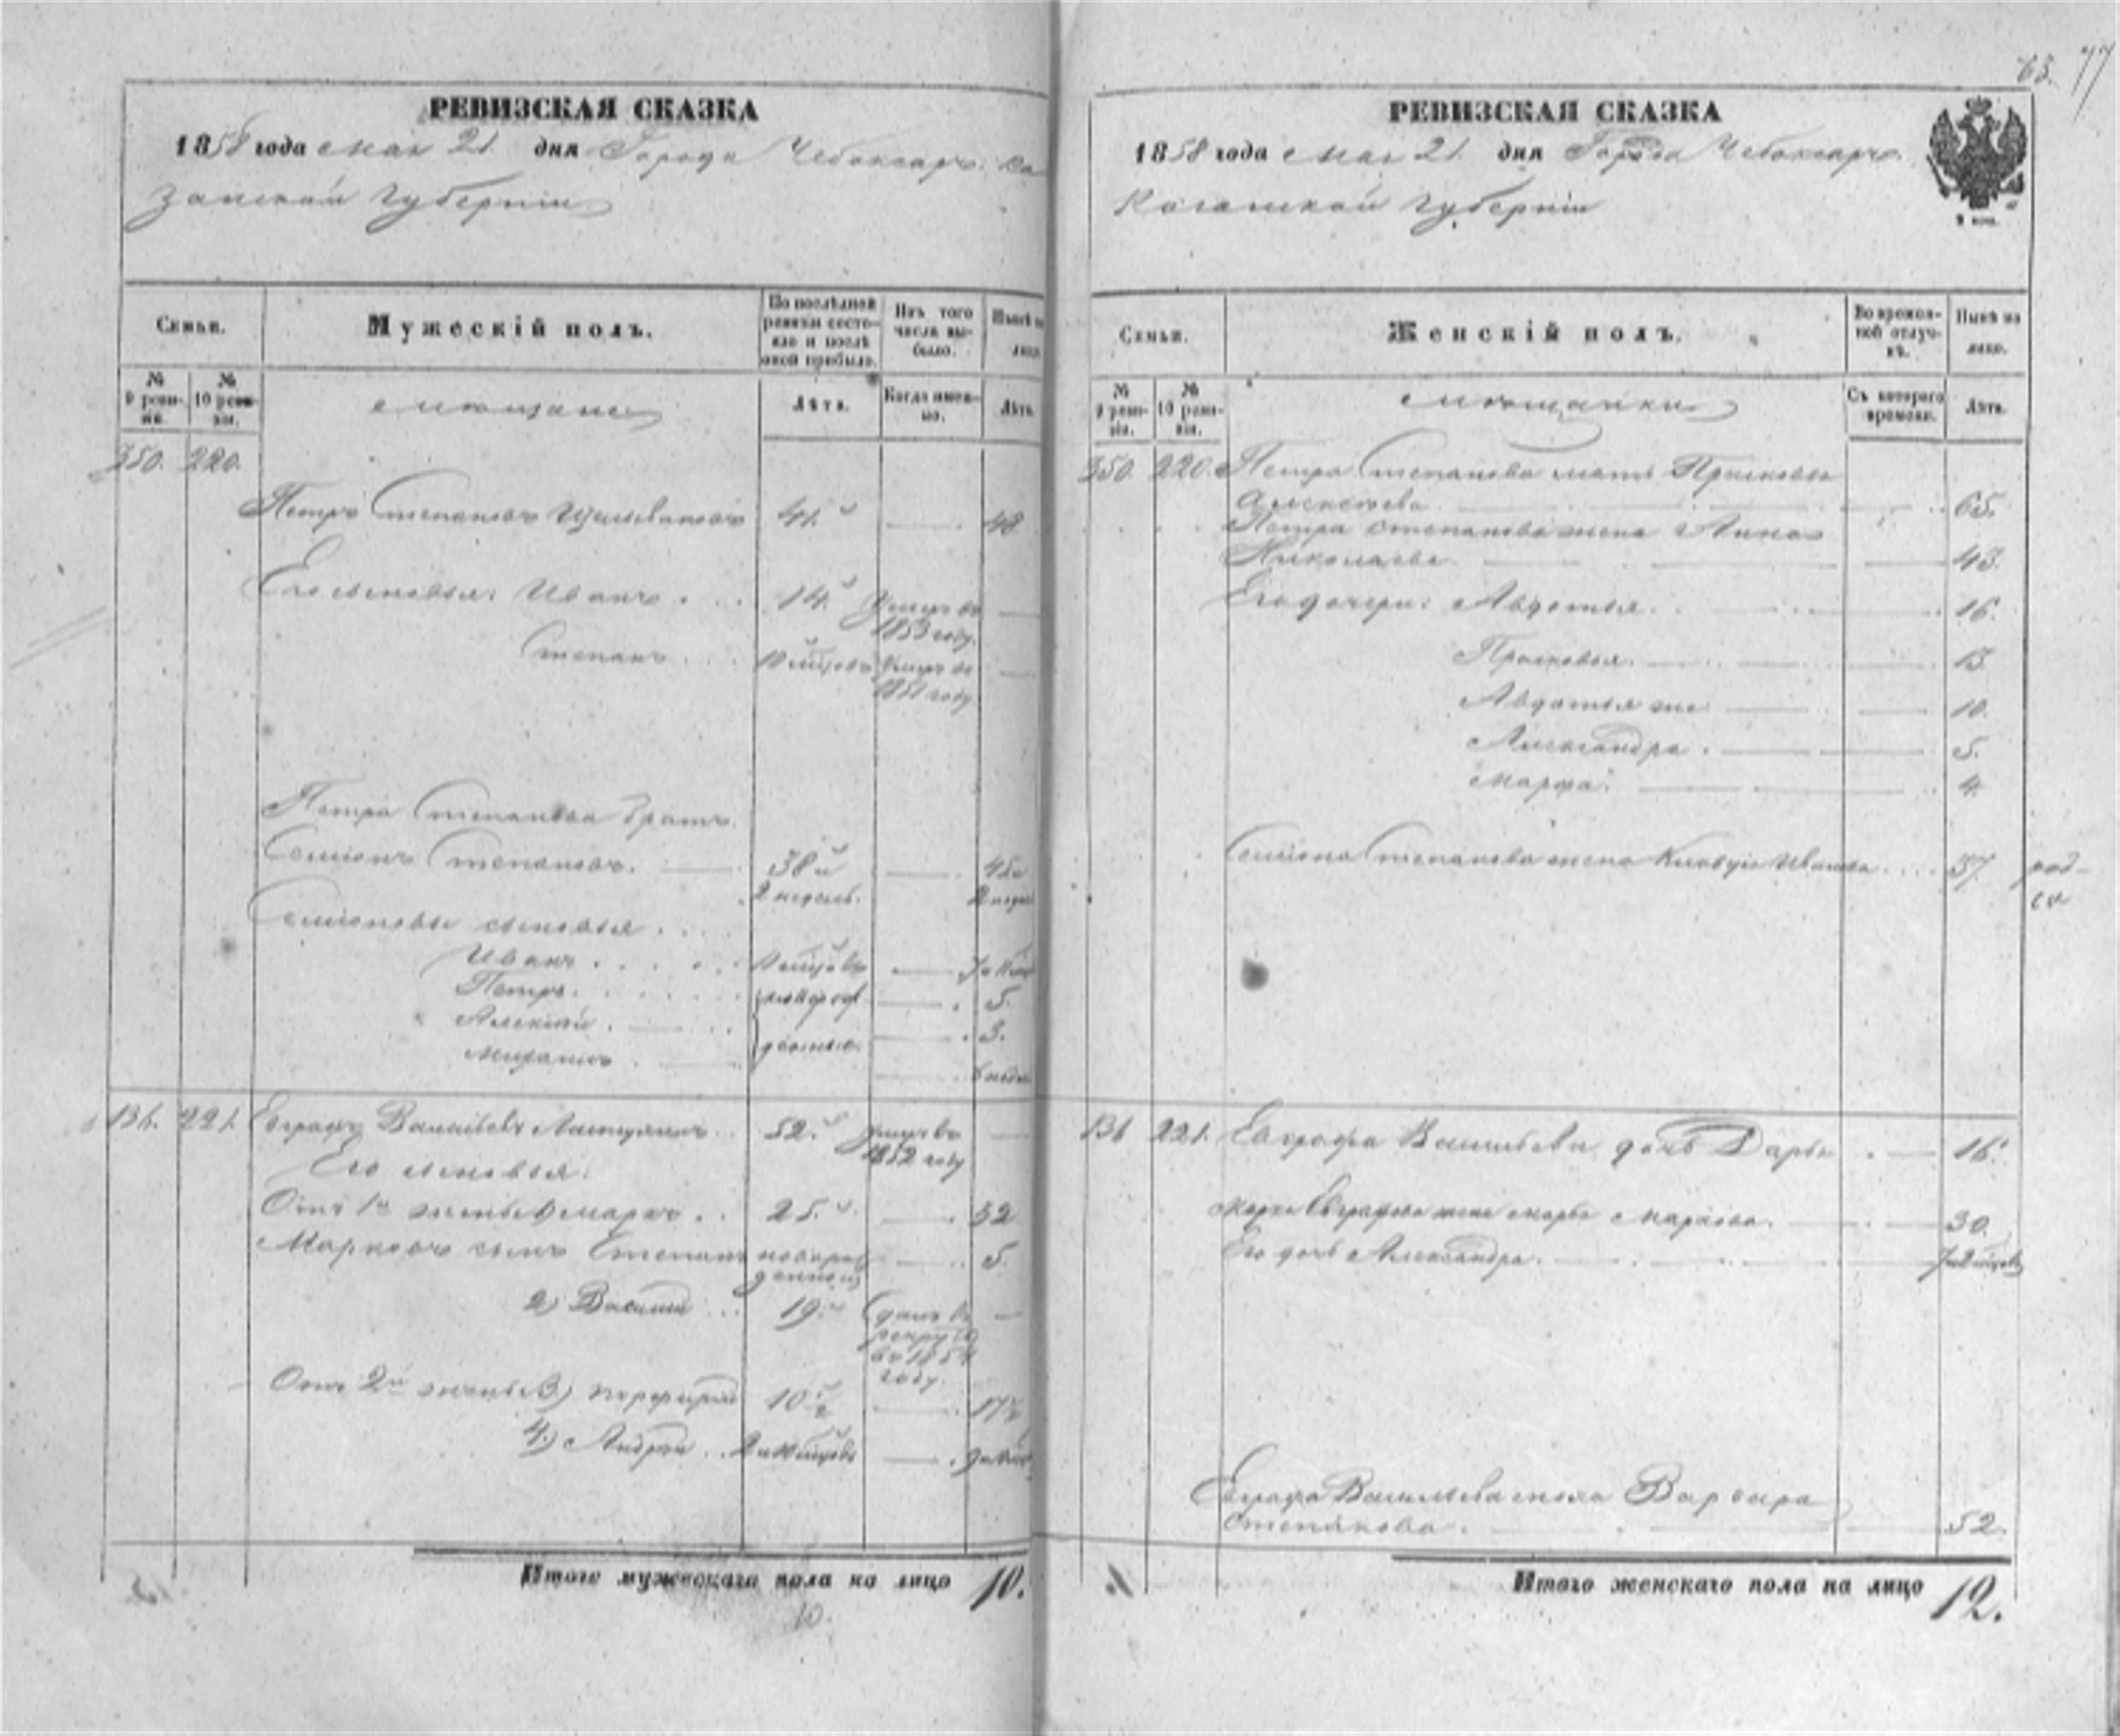 63. 77
РЕВИЗСКАЯ СКАЗКА
1858 года мая 21 дня Города Чебоксаръ. Ка
занской губерніи
Семьи.
Мужескій полъ.
По послѣдней ревизіи состояло и послѣ оной прибыло.
Изъ того числа выбыло.
Нынѣ на лицо.
№ 9 ревизіи.
№ 10 ревизіи.
мѣщане
Лѣта.
Когда именно.
Лѣта.
350. 220.
Петръ Степановъ 41. 48
Его сыновья: Иванъ 14. Умеръ въ 1853 году.
Степанъ Умеръ въ 1851 году
Петра Степанова братъ
Семіонъ Степановъ. 38 и 2 недель. 45 и
Семіоновы сыновья
Иванъ
Петръ. новорож 5.
Алексѣй 3.
Михаилъ денные.
136. 221. Евграфъ Васильевъ 52. Умеръ въ 1852 году
Его сыновья:
Отъ 1й жены 1) Марко 25. 32
Марковъ сынъ Степанъ новорож денной 5.
2) Василий 19. сданъ въ рекруты въ 1854 году.
Отъ 2й жены 3) Порфирий 10 1/2 17 1/2
4.) Андрей
Итого мужескаго пола на лицо 10.
РЕВИЗСКАЯ СКАЗКА
1858 года мая 21 дня Города Чебоксаръ
Казанской губерніи
Семьи.
Женскій полъ.
Во временной отлучкѣ.
Нынѣ на лицо.
№ 9 ревизіи.
№ 10 ревизіи.
мѣщанки
Съ котораго времени.
Лѣта.
350. 220. Петра Степанова мать Прасковья
Алексѣева 65.
Петра Степанова жена Анна
Николаева 43.
Его дочери: Авдотья. 16.
Прасковья. 13.
Авдотья же 10.
Александра. 5.
Марфа. 4.
Семіона Степанова жена Клавдія Иванова 37.
136 221. Евграфа Васильева дочь Дарья 16.
Марка Евграфова жена Марья Маркова. 30.
Его дочь Александра.
Евграфа Васильева жена Варвара
Степанова. 52.
Итого женскаго пола на лицо 12.